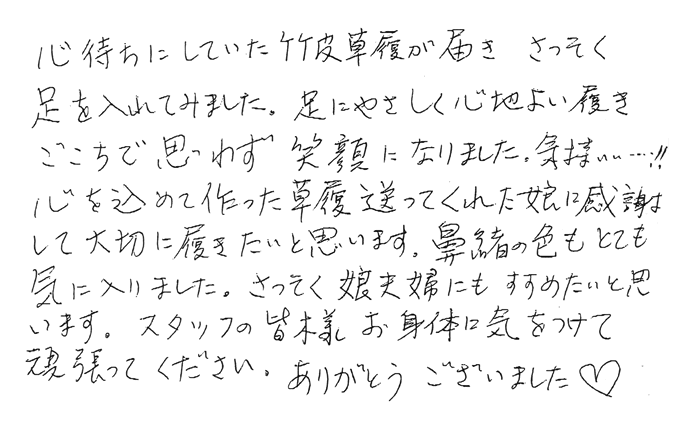 心待ちにしていた竹皮草履が届き さっそく
足を入れてみました。足にやさしく心地よい履き
ごこちで思わず 笑顔になりました。気持いい…!!
心を込めて作った草履送ってくれた娘に感謝
して大切に履きたいと思います。鼻緒の色もとても
気に入りました。さっそく娘夫婦にもすすめたいと思
います。スタッフの皆様 お身体に気をつけて
頑張ってください。ありがとう ございました♡